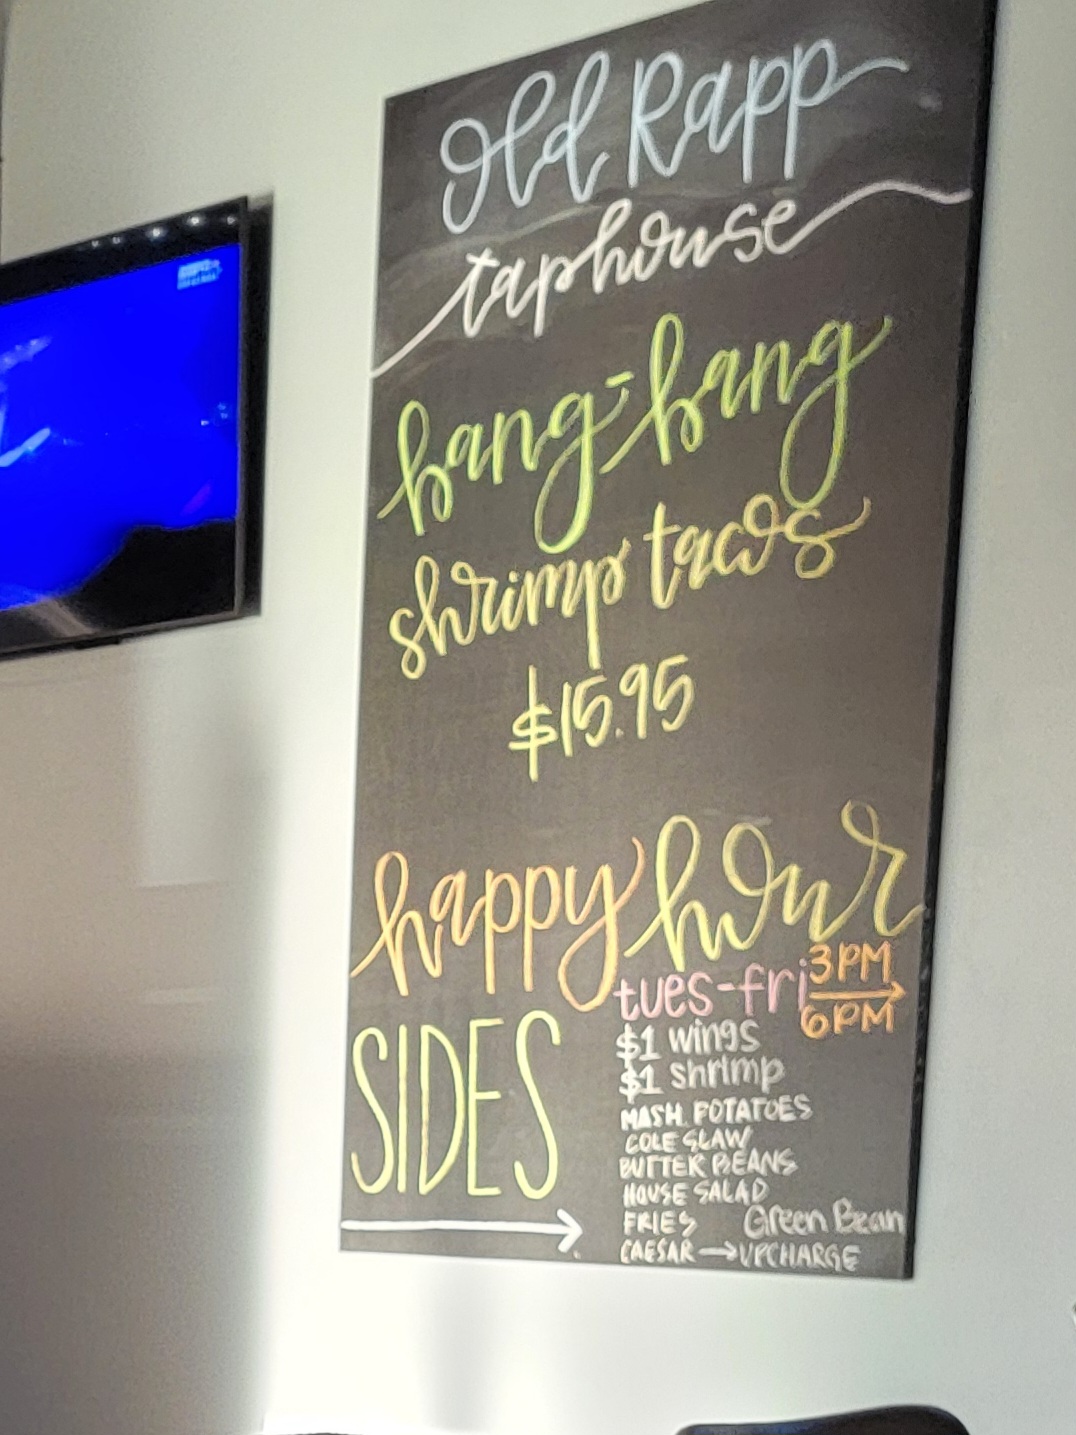 Old Rapp
taphouse
bang-bang
shrimp tacos
$15.95
happy hour
tues-fri 3PM
6PM
$1 wings
$1 shrimp
SIDES
MASH POTATOES
COLE SLAW
BUTTER BEANS
HOUSE SALAD
FRIES Green Bean
CAESAR → UPCHARGE